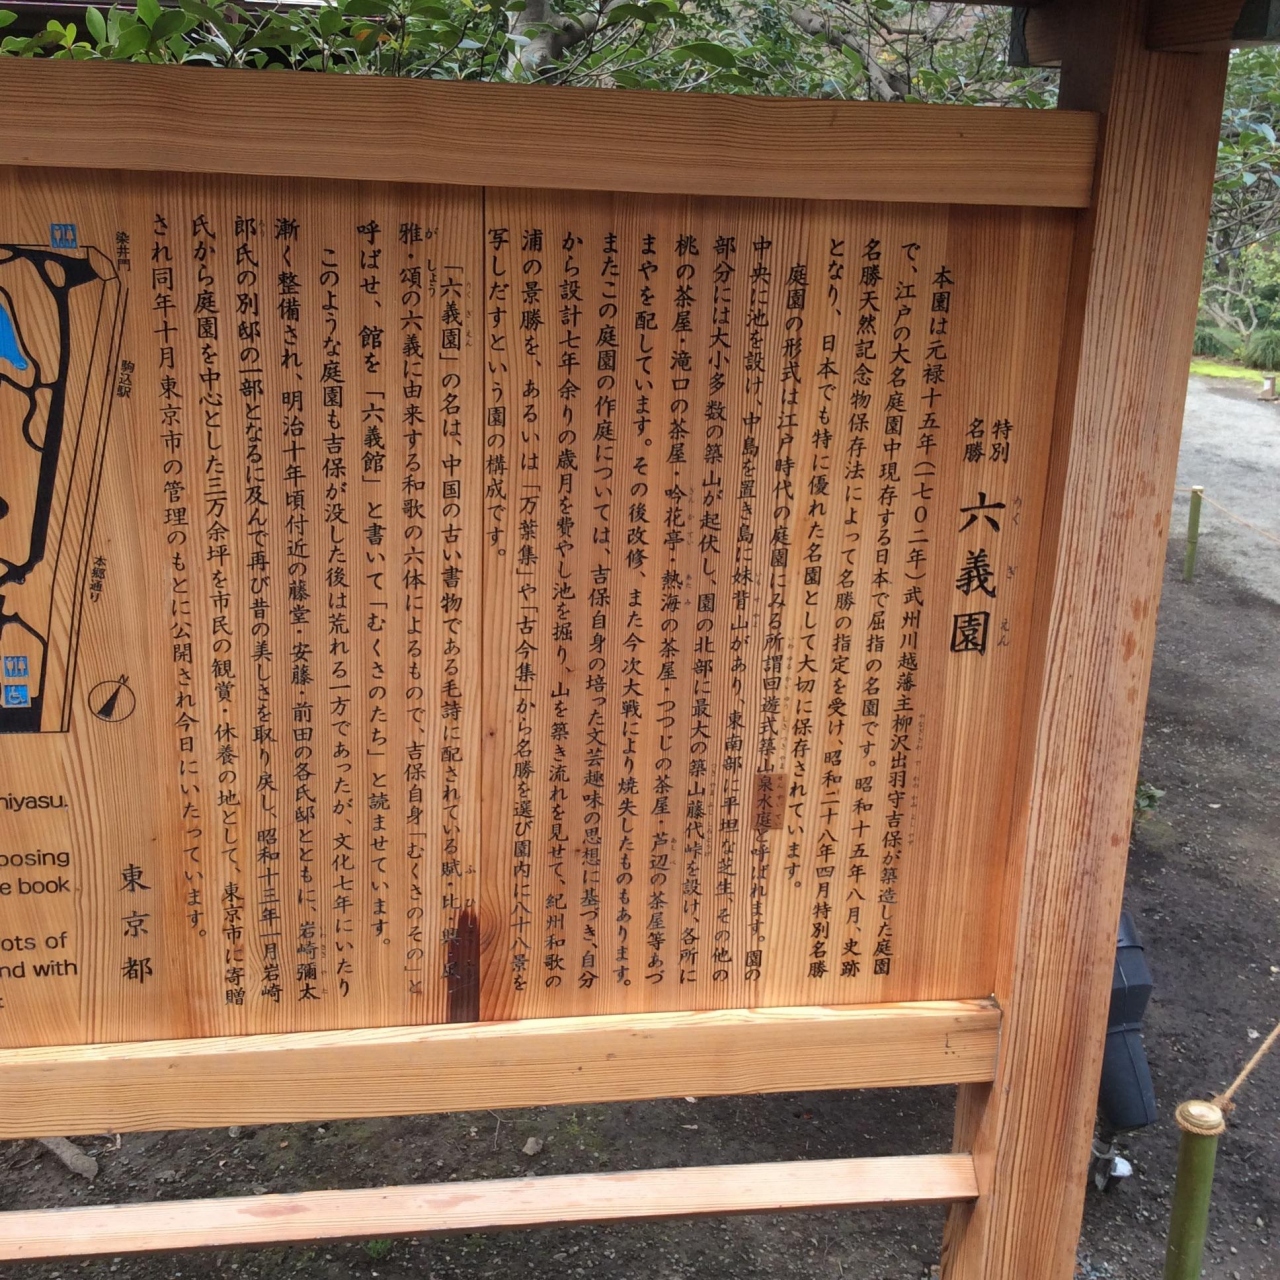 特別
名勝
六義園
りくぎえん
本園は元禄十五年(一七〇二年)武州川越藩主柳沢出羽守吉保が築造した庭園
で、江戸の大名庭園中現存する日本で屈指の名園です。昭和十五年八月、史跡
名勝天然記念物保存法によって名勝の指定を受け、昭和二十八年四月特別名勝
となり、日本でも特に優れた名園として大切に保存されています。
庭園の形式は江戸時代の庭園にみる所謂回遊式築山泉水庭と呼ばれます。園の
中央に池を設け、中島を置き島に妹背山があり、東南部に平坦な芝生、その他の
部分には大小多数の築山が起伏し、園の北部に最大の築山藤代峠を設け、各所に
桃の茶屋・滝口の茶屋・吟花亭・熱海の茶屋・つつじの茶屋・芦辺の茶屋等あづ
まやを配しています。その後改修、また今次大戦により焼失したものもあります。
またこの庭園の作庭については、吉保自身の培った文芸趣味の思想に基づき、自分
から設計七年余りの歳月を費やし池を掘り、山を築き流れを見せて、紀州和歌の
浦の景勝を、あるいは「万葉集」や「古今集」から名勝を選び園内に八十八景を
写しだすという園の構成です。
「六義園」の名は、中国の古い書物である毛詩に配されている賦・比・興・風
雅・頌の六義に由来する和歌の六体によるもので、吉保自身「むくさのその」と
呼ばせ、館を「六義館」と書いて「むくさのたち」と読ませています。
このような庭園も吉保が没した後は荒れる一方であったが、文化七年にいたり
漸く整備され、明治十年頃付近の藤堂・安藤・前田の各氏邸とともに、岩崎彌太
郎氏の別邸の一部となるに及んで再び昔の美しさを取り戻し、昭和十三年一月岩崎
氏から庭園を中心とした三万余坪を市民の観賞・休養の地として、東京市に寄贈
され同年十月東京市の管理のもとに公開され今日にいたっています。
東京都
染井門
駒込駅
本郷通り
N
hiyasu.
posing
e book
ots of
nd with